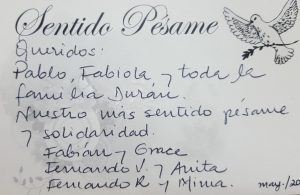 Sentido Pésame
Queridos:
Pablo, Fabiola, y toda la
familia Durán.
Nuestro más sentido pésame
y solidaridad.
Fabián y Grace
Fernando V. y Anita
Fernando R y Mima
may./20